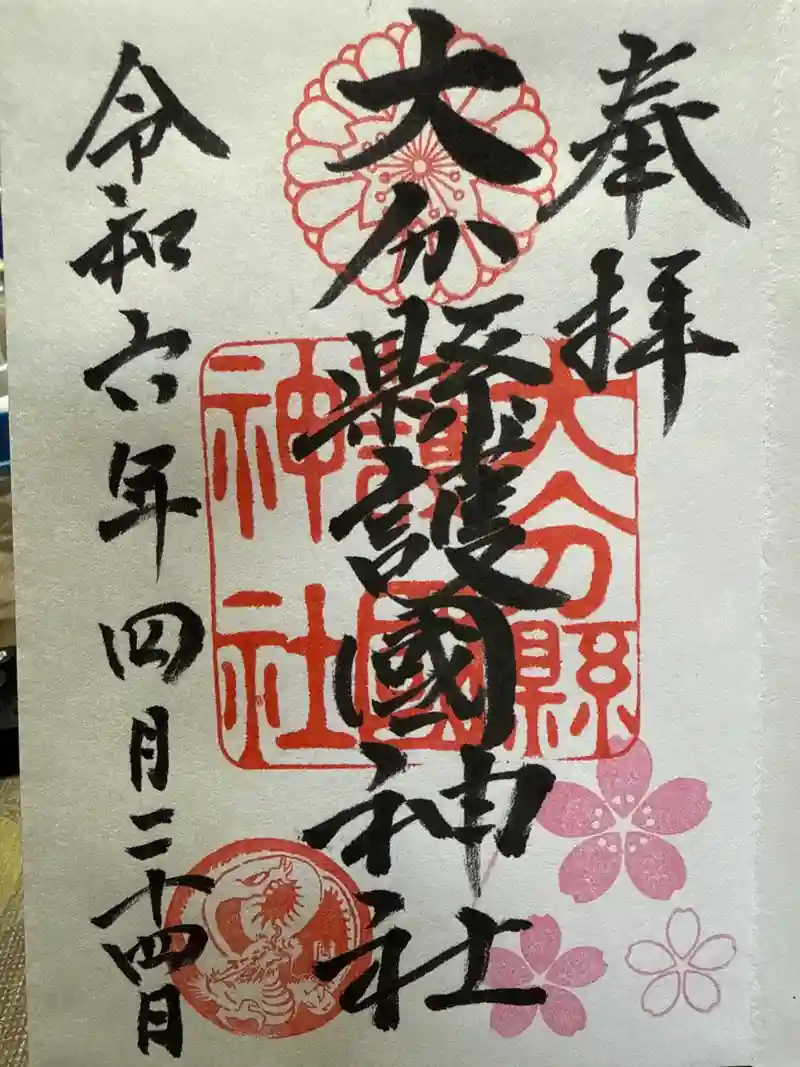 奉拝
大分縣護國神社
大分縣護國神社
令和六年四月二十四日